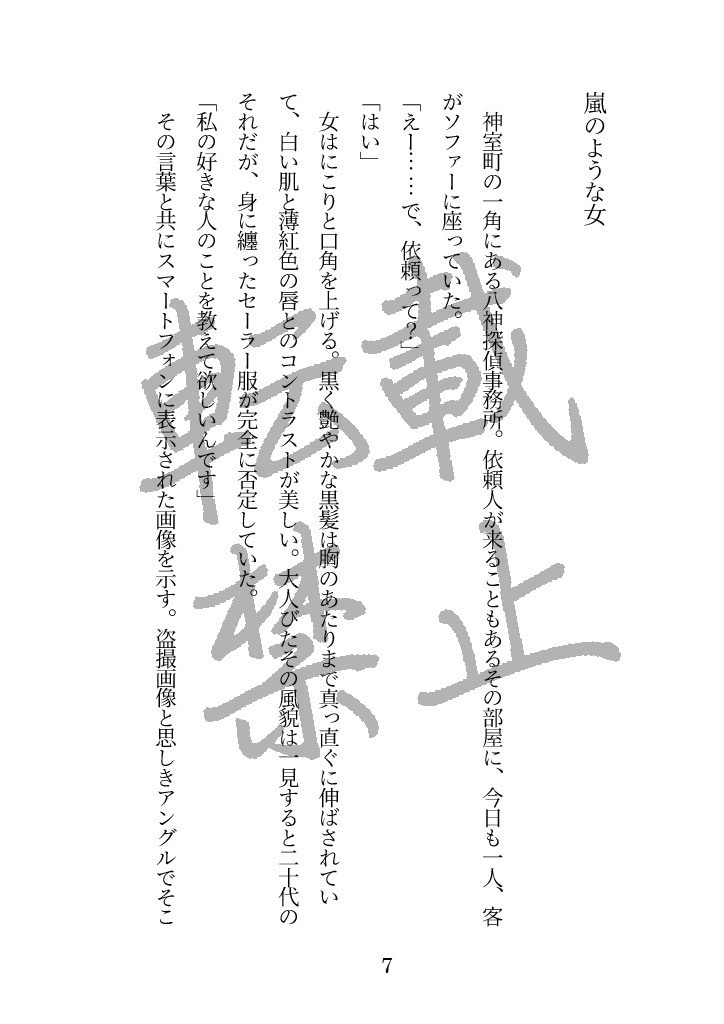 嵐のような女
神室町の一角にある八神探偵事務所。依頼人が来ることもあるその部屋に、今日も一人、客
がソファーに座っていた。
「えー……で、依頼って？」
「はい」
女はにこりと口角を上げる。黒く艶やかな黒髪は胸のあたりまで真っ直ぐに伸ばされてい
て、白い肌と薄紅色の唇とのコントラストが美しい。大人びたその風貌は一見すると二十代の
それだが、身に纏ったセーラー服が完全に否定していた。
「私の好きな人のことを教えて欲しいんです」
その言葉と共にスマートフォンに表示された画像を示す。盗撮画像と思しきアングルでそこ
転載
禁止
7